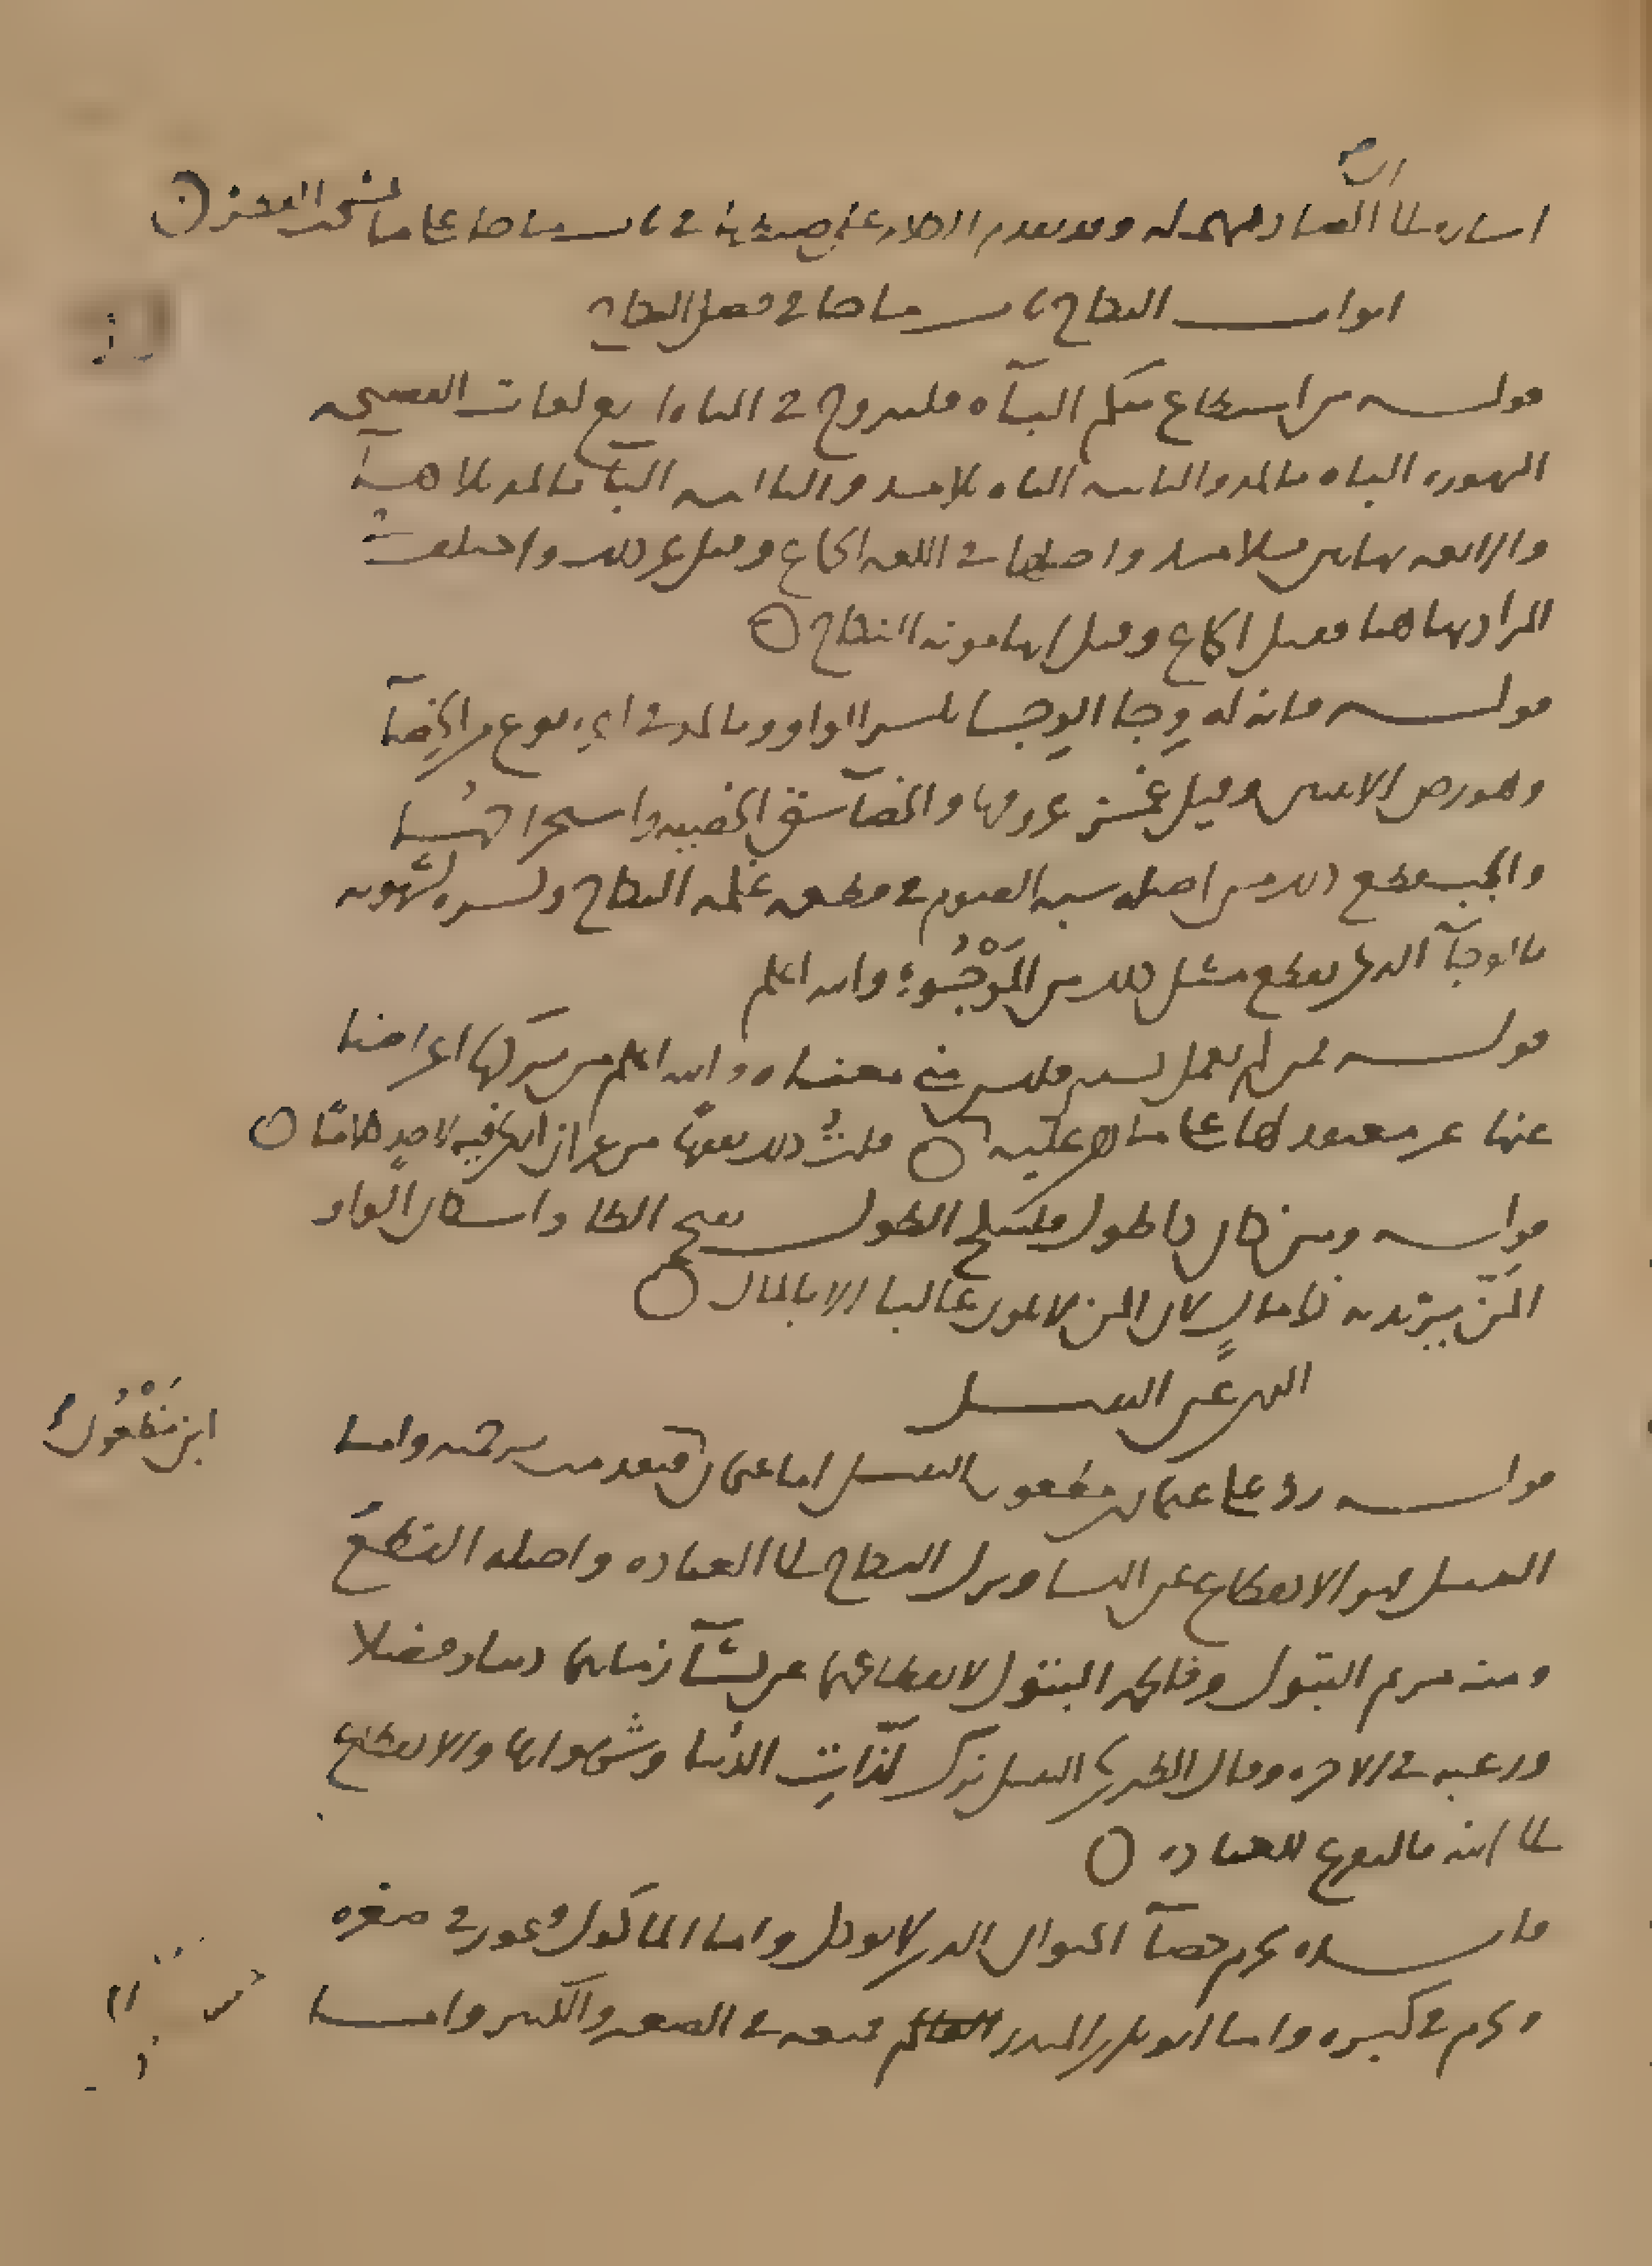 اشاره الى الصاد المهمله وقد تقدم الكلام على ضبطها في باب ما جا على ما
ابواب النكاح باب ما جا في فضل النكاح
قوله من استطاع منكم البآه فليتزوج في الباه اربع لغات الفصيحه
المشهوره الباه بالمد والثانيه الباه بلا مد والثالثه البآ بالمد بلا هآ
والرابعه بهاين بلا مد واصلها في اللغه الجماع وقيل غير ذلك واختلف
المراد بها هنا فقيل الجماع وقيل انها مونه النكاح
قوله فانه له وجا الوجا بكسر الواو وبالمد في اخره نوع من الخصآ
وهو رض الانثيين وقيل غمز عروقها والخصآ شق الخصيه واستخراجها
والجب قطع ذلك من اصله شبه الصوم في قطعه غلمه النكاح وكسره لشهوته
بالوجآ الذي يقطع مثل ذلك من المَوْجُوء والله اعلم
قوله فمن لم يعمل بسنتي فليس مني معناه والله اعلم من تركها اعراضا
عنها غير معتقد لها على ما هي عليه قلت ذلك تفقها من غير ان اكن فيه لاحد كلاما
قوله ومن كان ذا طول فلينكح الطول بفتح الطا واسكان الواو
المن يريد به ذا مال لان المن لا يكون غالبا الا بالمال
النهي عن التبتل
قوله رد على عثمان بن مظعون التبتل اما عثمان فقد تقدمت ترجمته واما
ابن مَظْعُون
التبتل فهو الانقطاع عن النسا وترك النكاح الى العباده واصله القطع
ومنه مريم البتول وفاطمه البتول لانقطاعهما عن نسآ زمانهما دينا وفضلا
ورغبه في الاخره وقال الطبري التبتل ترك لذات الدنيا وشهواتها والانقطاع
الى الله بالتفرغ للعباده
فايده يحرم خصآ الحيوان الذي لا يوكل واما الماكول فيجوز في صغره
ويحرم في كبره واما ابو بكر بن المنذر فمنعه في الصغير والكبير واما